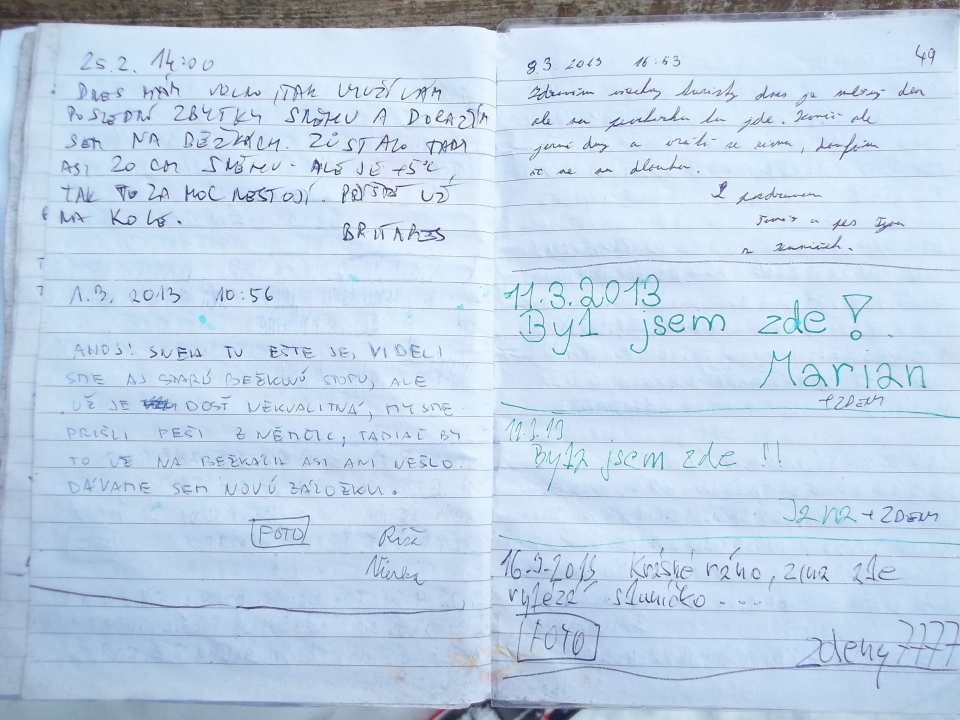 25.2. 14:00
DNES MÁM VOLNO, TAK VYUŽÍVÁM
POSLEDNÍ ZBYTKY SNĚHU A DORAZIL
SEM NA BĚŽKÁCH. ZŮSTALO TADY
ASI 20 CM SNĚHU. ALE JE +5°C,
TAK TO ZA MOC NESTOJÍ. PŘÍŠTĚ UŽ
NA KOLE.
BRITARES
1.3. 2013 10:56
AHOJ! SNEH TU EŠTE JE, VIDELI
SME AJ STARÚ BEŽKOVÚ STOPU, ALE
UŽ JE DOSŤ NEKVALITNÁ, MY SME
PRIŠLI PEŠI Z NĚMČIC, TADIAĽ BY
TO UŽ NA BEŽKÁCH ASI ANI NEŠLO.
DÁVAME SEM NOVÚ ZÁLOŽKU.
FOTO
Vierka
49
9.3 2013 16:53
Zdravím všechny turisty dnes je den
ale na procházku to jde. Končí ale
jarní dny a vrátí se zima, doufám
že ne na dlouho.
S pozdravem
a pes
11.3.2013
By1 jsem zde!
Marian
+ZDENY
12.3.13
By1a jsem zde !!
Jana + ZDENY
16.3.2013 Krásné ráno, zima zde
vytězá sluníčko ...
FOTO
zdeny7777